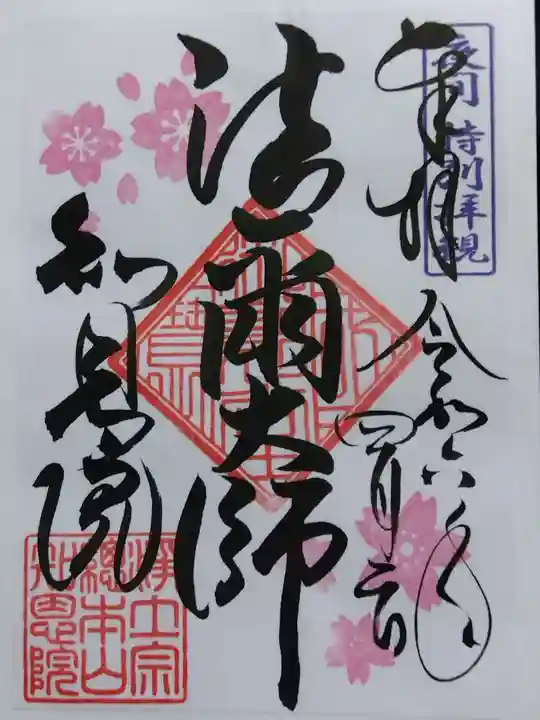 夜間特別拝観
奉拝
令和六年
四月二日
法爾大師
知恩院
浄土宗
總本山
知恩院